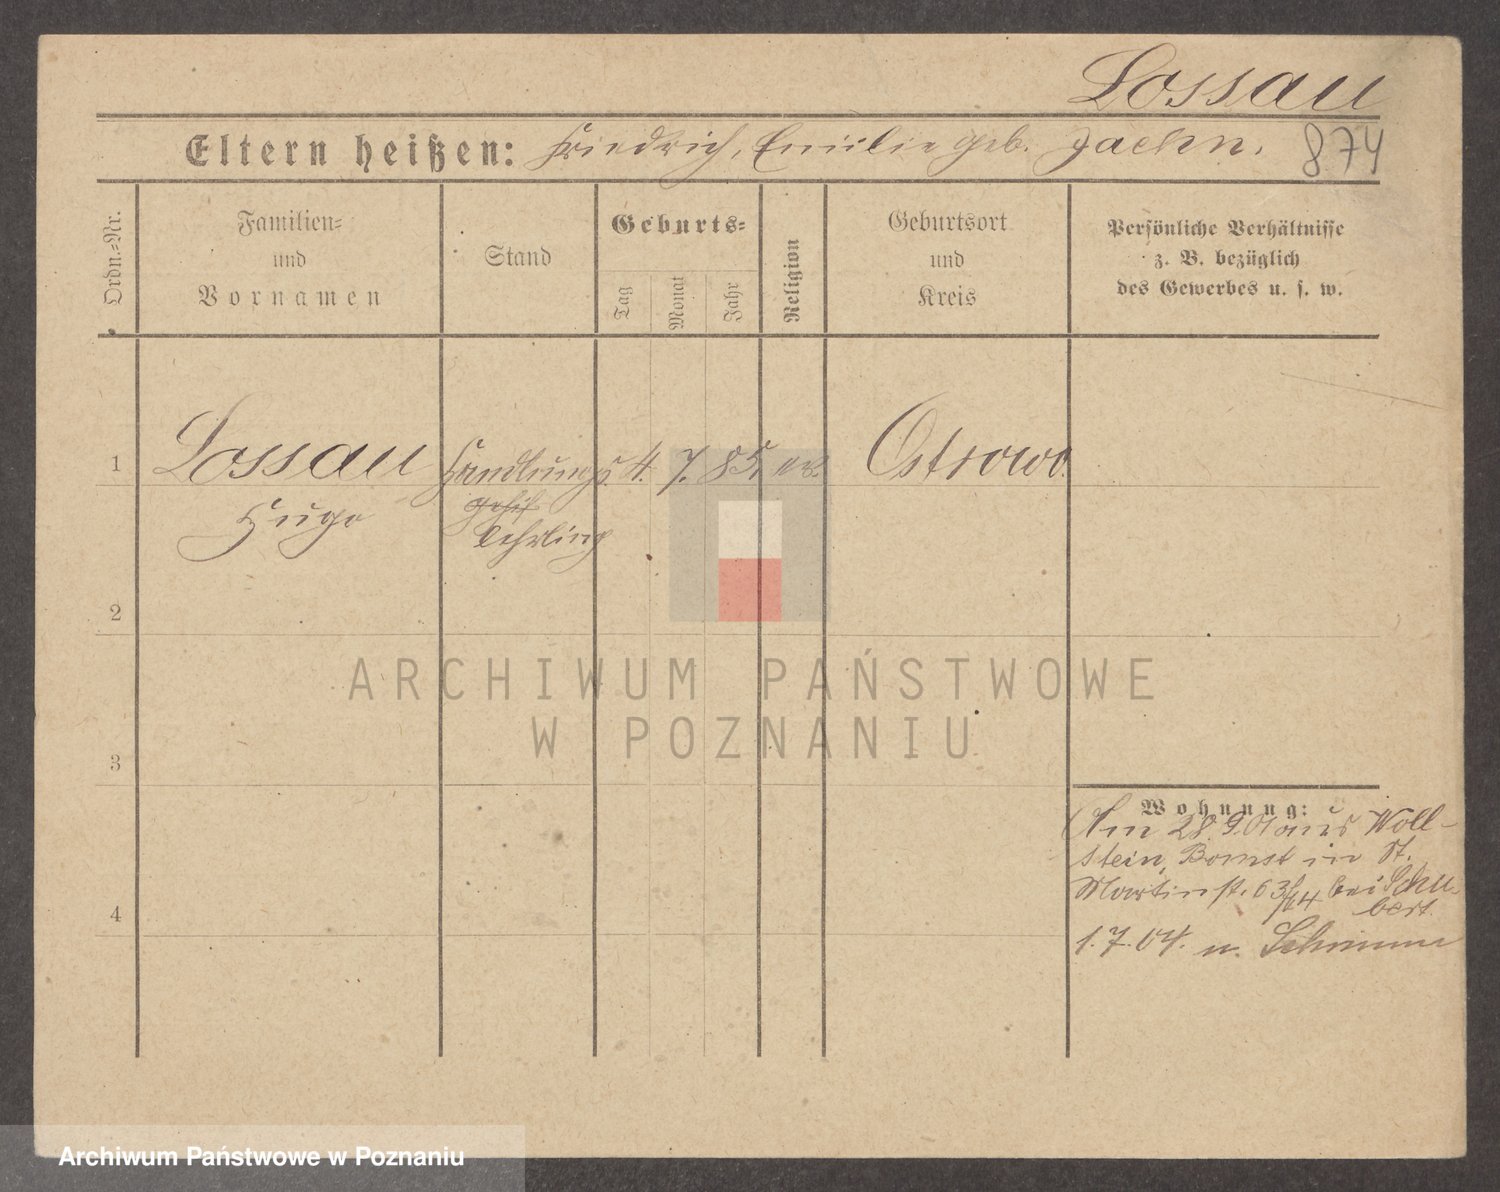 Lossau
Eltern heißen: Friedrich, Emilie geb. Jaehn.
874
Ordn.-Nr.
Familien-
und
Vornamen
Stand
Geburts-
Tag
Monat
Jahr
Religion
Geburtsort
und
Kreis
Persönliche Verhältnisse
z. B. bezüglich
des Gewerbes u. s. w.
1
Lossau
Hugo
Handlungs
gehilf
Lehrling
4. 7. 85. ev.
Ostrowo
2
3
4
Wohnung:
Am 28.9.01 aus Woll-
stein, Bomst in St.
Martinst. 63 bei Schu-
bert
1.7.04. n. Schrimm
ARCHIWUM PAŃSTWOWE
W POZNANIU
Archiwum Państwowe w Poznaniu